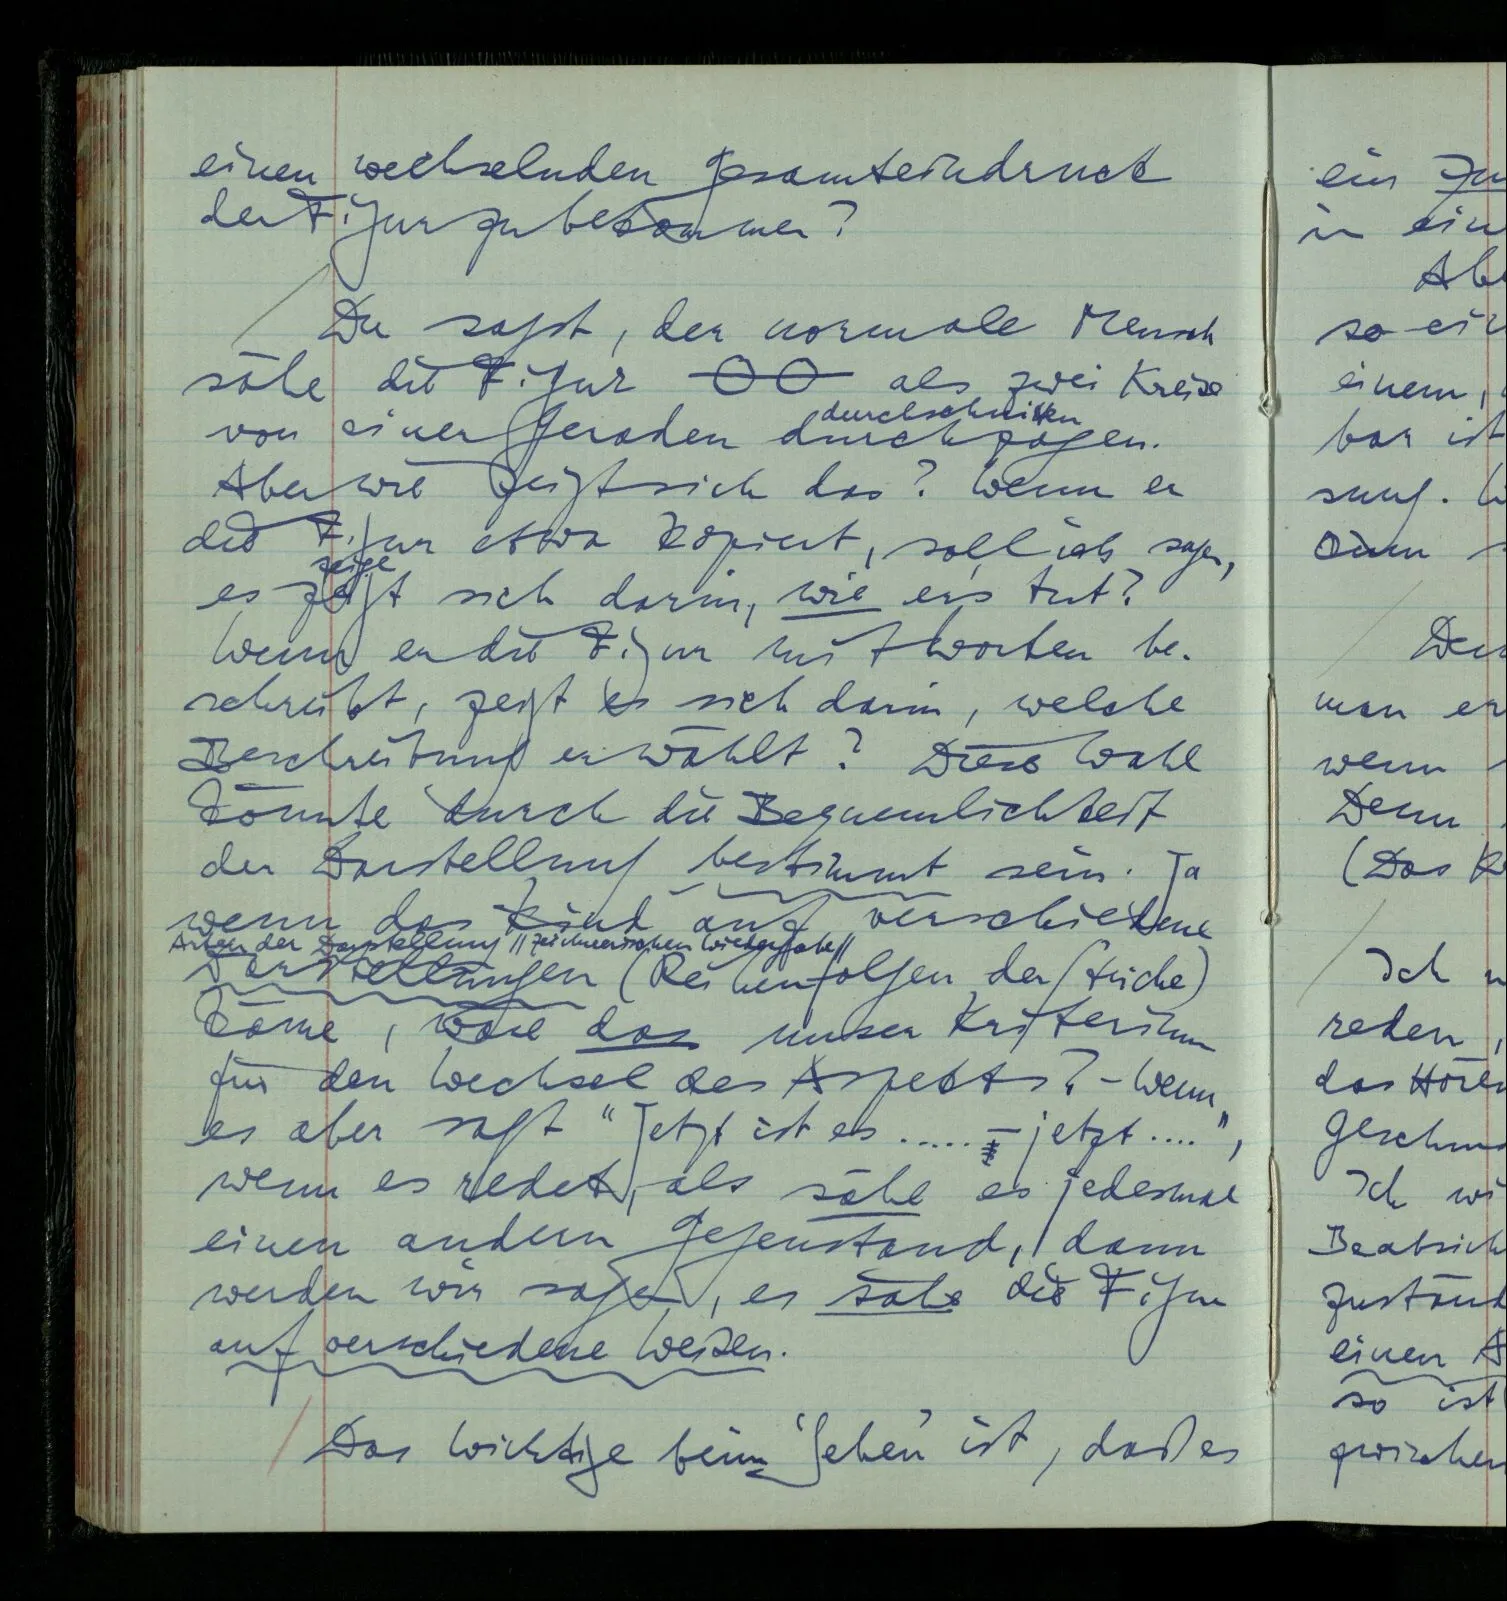 einen wechselnden Gesamteindruck
der Figur zu bekommen?
Du sagst, der normale Mensch
sähe die Figur als zwei Kreise
durchschnitten
von einer Geraden durchzogen.
Aber wie zeigt sich das? Wenn er
die Figur etwa kopiert, soll ich sagen,
zeige
es zeigt sich darin, wie er's tut?
Wenn er die Figur mit Worten be-
schreibt, zeigt es sich darin, welche
Beschreibung er wählt? Diese Wahl
könnte durch die Bequemlichkeit
der Darstellung bestimmt sein. Ja
wenn das Kind auf verschiedene
Arten der Darstellung // zeichnerischen Wiedergabe //
Darstellungen (Reihenfolgen der Striche)
käme, wäre das unser Kriterium
für den Wechsel des Aspekts? – Wenn
es aber sagt "Jetzt ist es ..... – jetzt ....",
wenn es redet, als sähe es jedesmal
einen andern Gegenstand, dann
werden wir sagen, es sähe die Figur
auf verschiedene Weisen.
Das Wichtige beim 'Sehen' ist, daß es
ein
in ein
so
einem,
bar ist
sung.
man er
wenn
Denn
(Das
Ich
reden,
das Hören
Ich
einen
so ist
zwischen